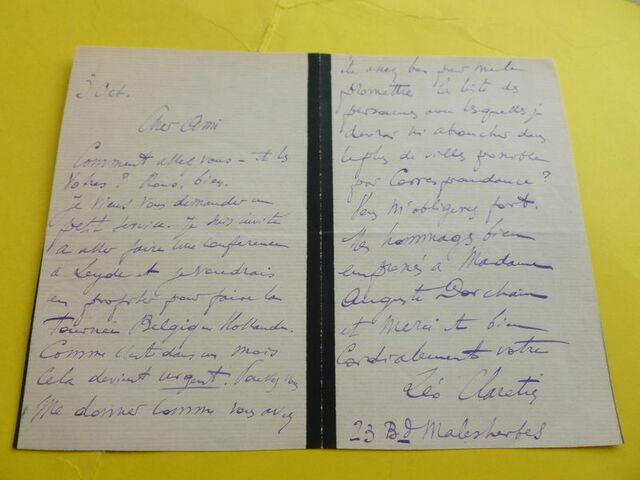 3 Oct.
Cher Ami
Comment allez vous - et les
Vôtres? Nous, bien.
Je viens vous demander un
petit service. Je suis invité
à aller faire une conférence
à Leyde et je voudrais
en profiter pour faire la
Tournée Belgique Hollande.
Comme c'est dans un mois
cela devient urgent. Pouvez vous
me donner comme vous avez
été assez bon pour me le
promettre la liste des
personnes avec lesquelles je
devrai m'aboucher dans
le plus de villes possible
par Correspondance?
Vous m'obligerez fort.
Mes hommages bien
empressés à Madame
Auguste Dorchain
et merci et bien
Cordialement votre
Léo Claretie
23 Bd Malesherbes